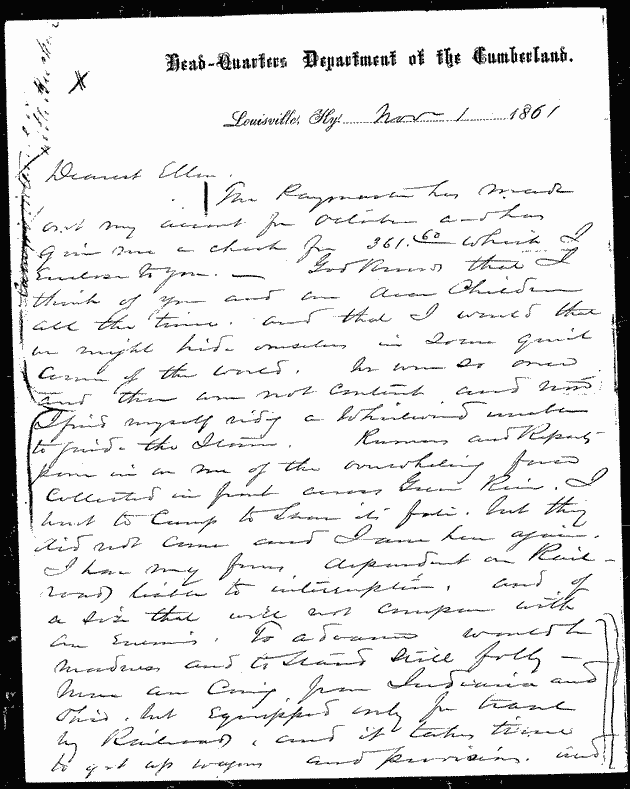 Head-Quarters Department of the Cumberland.
Louisville, Ky. Nov 1 1861
Dearest Ellen.
The Paymaster has made
out my account for October and has
given me a check for 361.60 which I
enclose to you. — God knows that I
think of you and our dear Children
all the time. and that I would that
we might hide ourselves in some quiet
corner of the world. We were so once
and then were not content and now
I find myself riding a Whirlwind unable
to guide the Storm. Rumors and Reports
pour in on me of the overwhelming force
collected in front across Green River. I
went to Camp to its but they
did not come and I am here again.
I have my force dependent on Rail-
roads liable to interruption, and of
a size that will not compare with
an Enemies. To advance would be
madness and to stand still folly —
Men are coming from Indiana and
Ohio, but equipped only for travel
by Railroad, and it takes time
to get up wagons and provisions. and